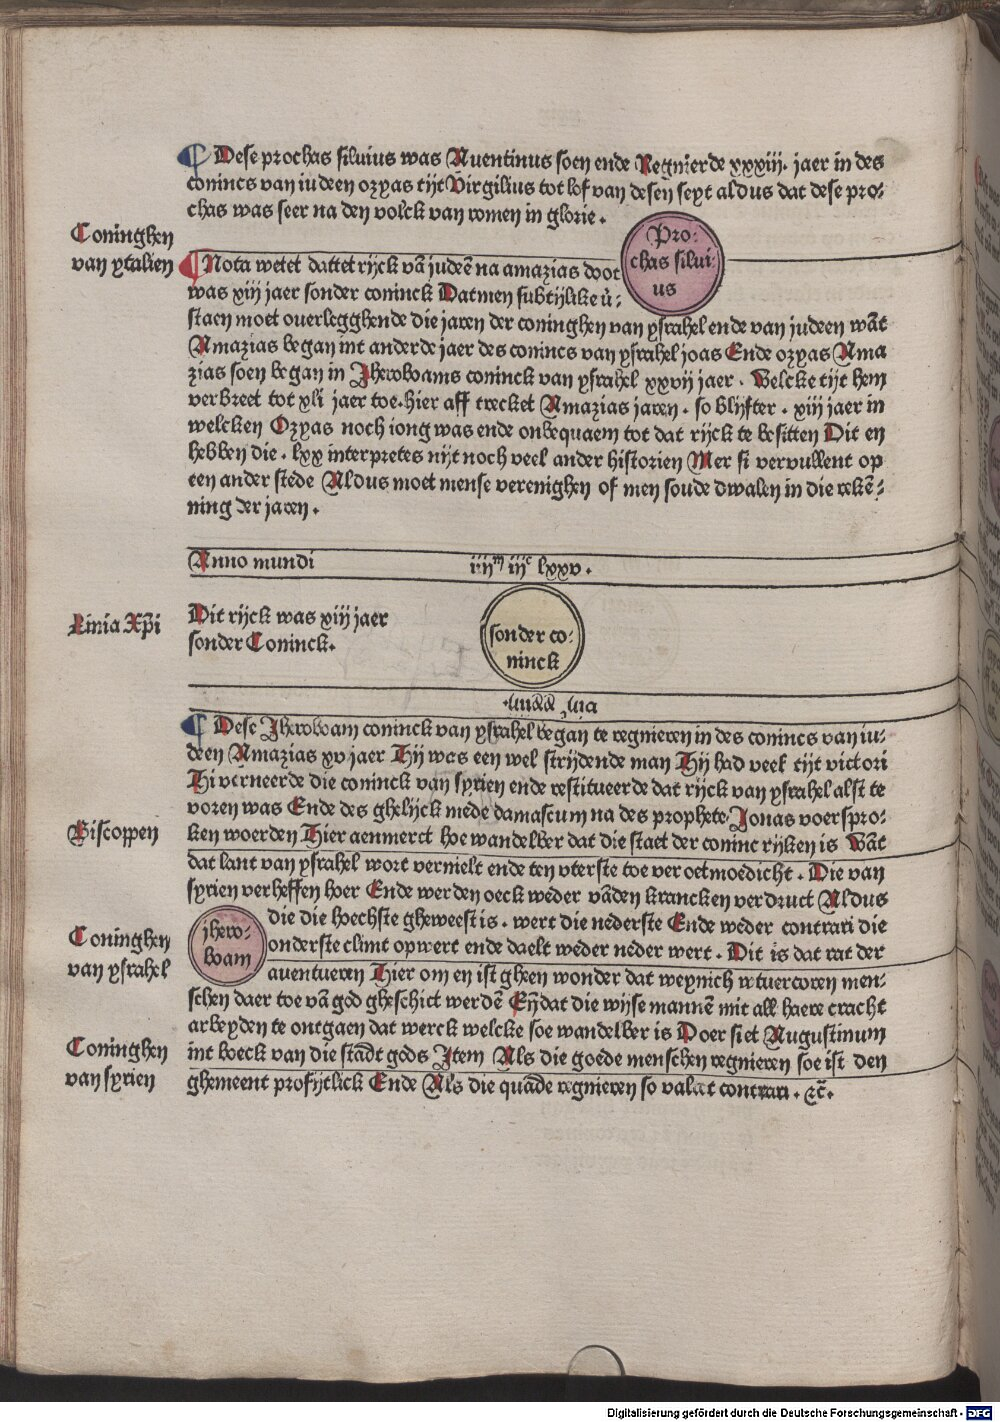 Dese prochas siluius was Auentinus soen ende Regnierde xxxiij. jaer in des
conincs van iudeen ozyas tijt Virgilius tot lof van desen seyt aldus dat dese pro-
chas was seer na den volck van romen in glorie.
Coninghen
van ytalien
Pro-
chas silui-
us
Nota wetet dattet rijck vā judeē na amazias doot
was xiij jaer sonder coninck Datmen subtijlike v̄-
staen moet ouerlegghende die jaren der coninghen van ysrahel ende van judeen wāt
Amazias began int anderde jaer des conincs van ysrahel joas Ende ozyas Ama
zias soen began in Jheroboams coninck van ysrahel xxvij jaer. Welcke tijt hem
verbreet tot xli jaer toe. hier aff trecket Amazias jaren. so blijfter. xiij jaer in
welcken Ozyas noch iong was ende onbequaem tot dat rijck te besitten Dit en
hebben die. lxx interpretes nijt noch veel ander historien Mer si vervullent op
een ander stede Aldus moet mense verenighen of men soude dwalen in die rekē-
ning der jaren.
Anno mundi iiijm iijc lxxv.
Linia Xp̄i
Dit rijck was xiij jaer
sonder Coninck.
sonder co-
ninck
Dese Jheroboam coninck van ysrahel began te regnieren in des conincs van iu-
deen Amazias xv jaer Hij was een wel strijdende man Hij had veel tijt victori
Hi verneerde die coninck van syrien ende restitueerde dat rijck van ysrahel alst te
voren was Ende des ghelijck mede damascum na des prophete Jonas voerspro-
Biscoppen
ken woerden Hier aenmerct hoe wandelber dat die staet der coninc rijken is Wāt
dat lant van ysrahel wort vernielt ende ten vterste toe veroetmoedicht. Die van
syrien verheffen hoer Ende werden oeck weder vāden krancken verdruct Aldus
Coninghen
van ysrahel
jhero-
boam
die die hoechste gheweest is. wert die nederste Ende weder contrari die
onderste climt opwert ende daelt weder neder wert. Dit is dat rat der
auentueren Hier om en ist gheen wonder dat weynich men-
schen daer toe vā god gheschict werdē Eñ dat die wijse mannē mit all haere cracht
arbeyden te ontgaen dat werck welcke soe wandelber is Doer siet Augustinum
Coninghen
van syrien
int boeck van die stadt gods Jtem Als die goede menschen regnieren soe ist den
ghemeent profijtlick Ende Als die quāde regnieren so valat contrari. ⁊c̄.
Digitalisierung gefördert durch die Deutsche Forschungsgemeinschaft - DFG